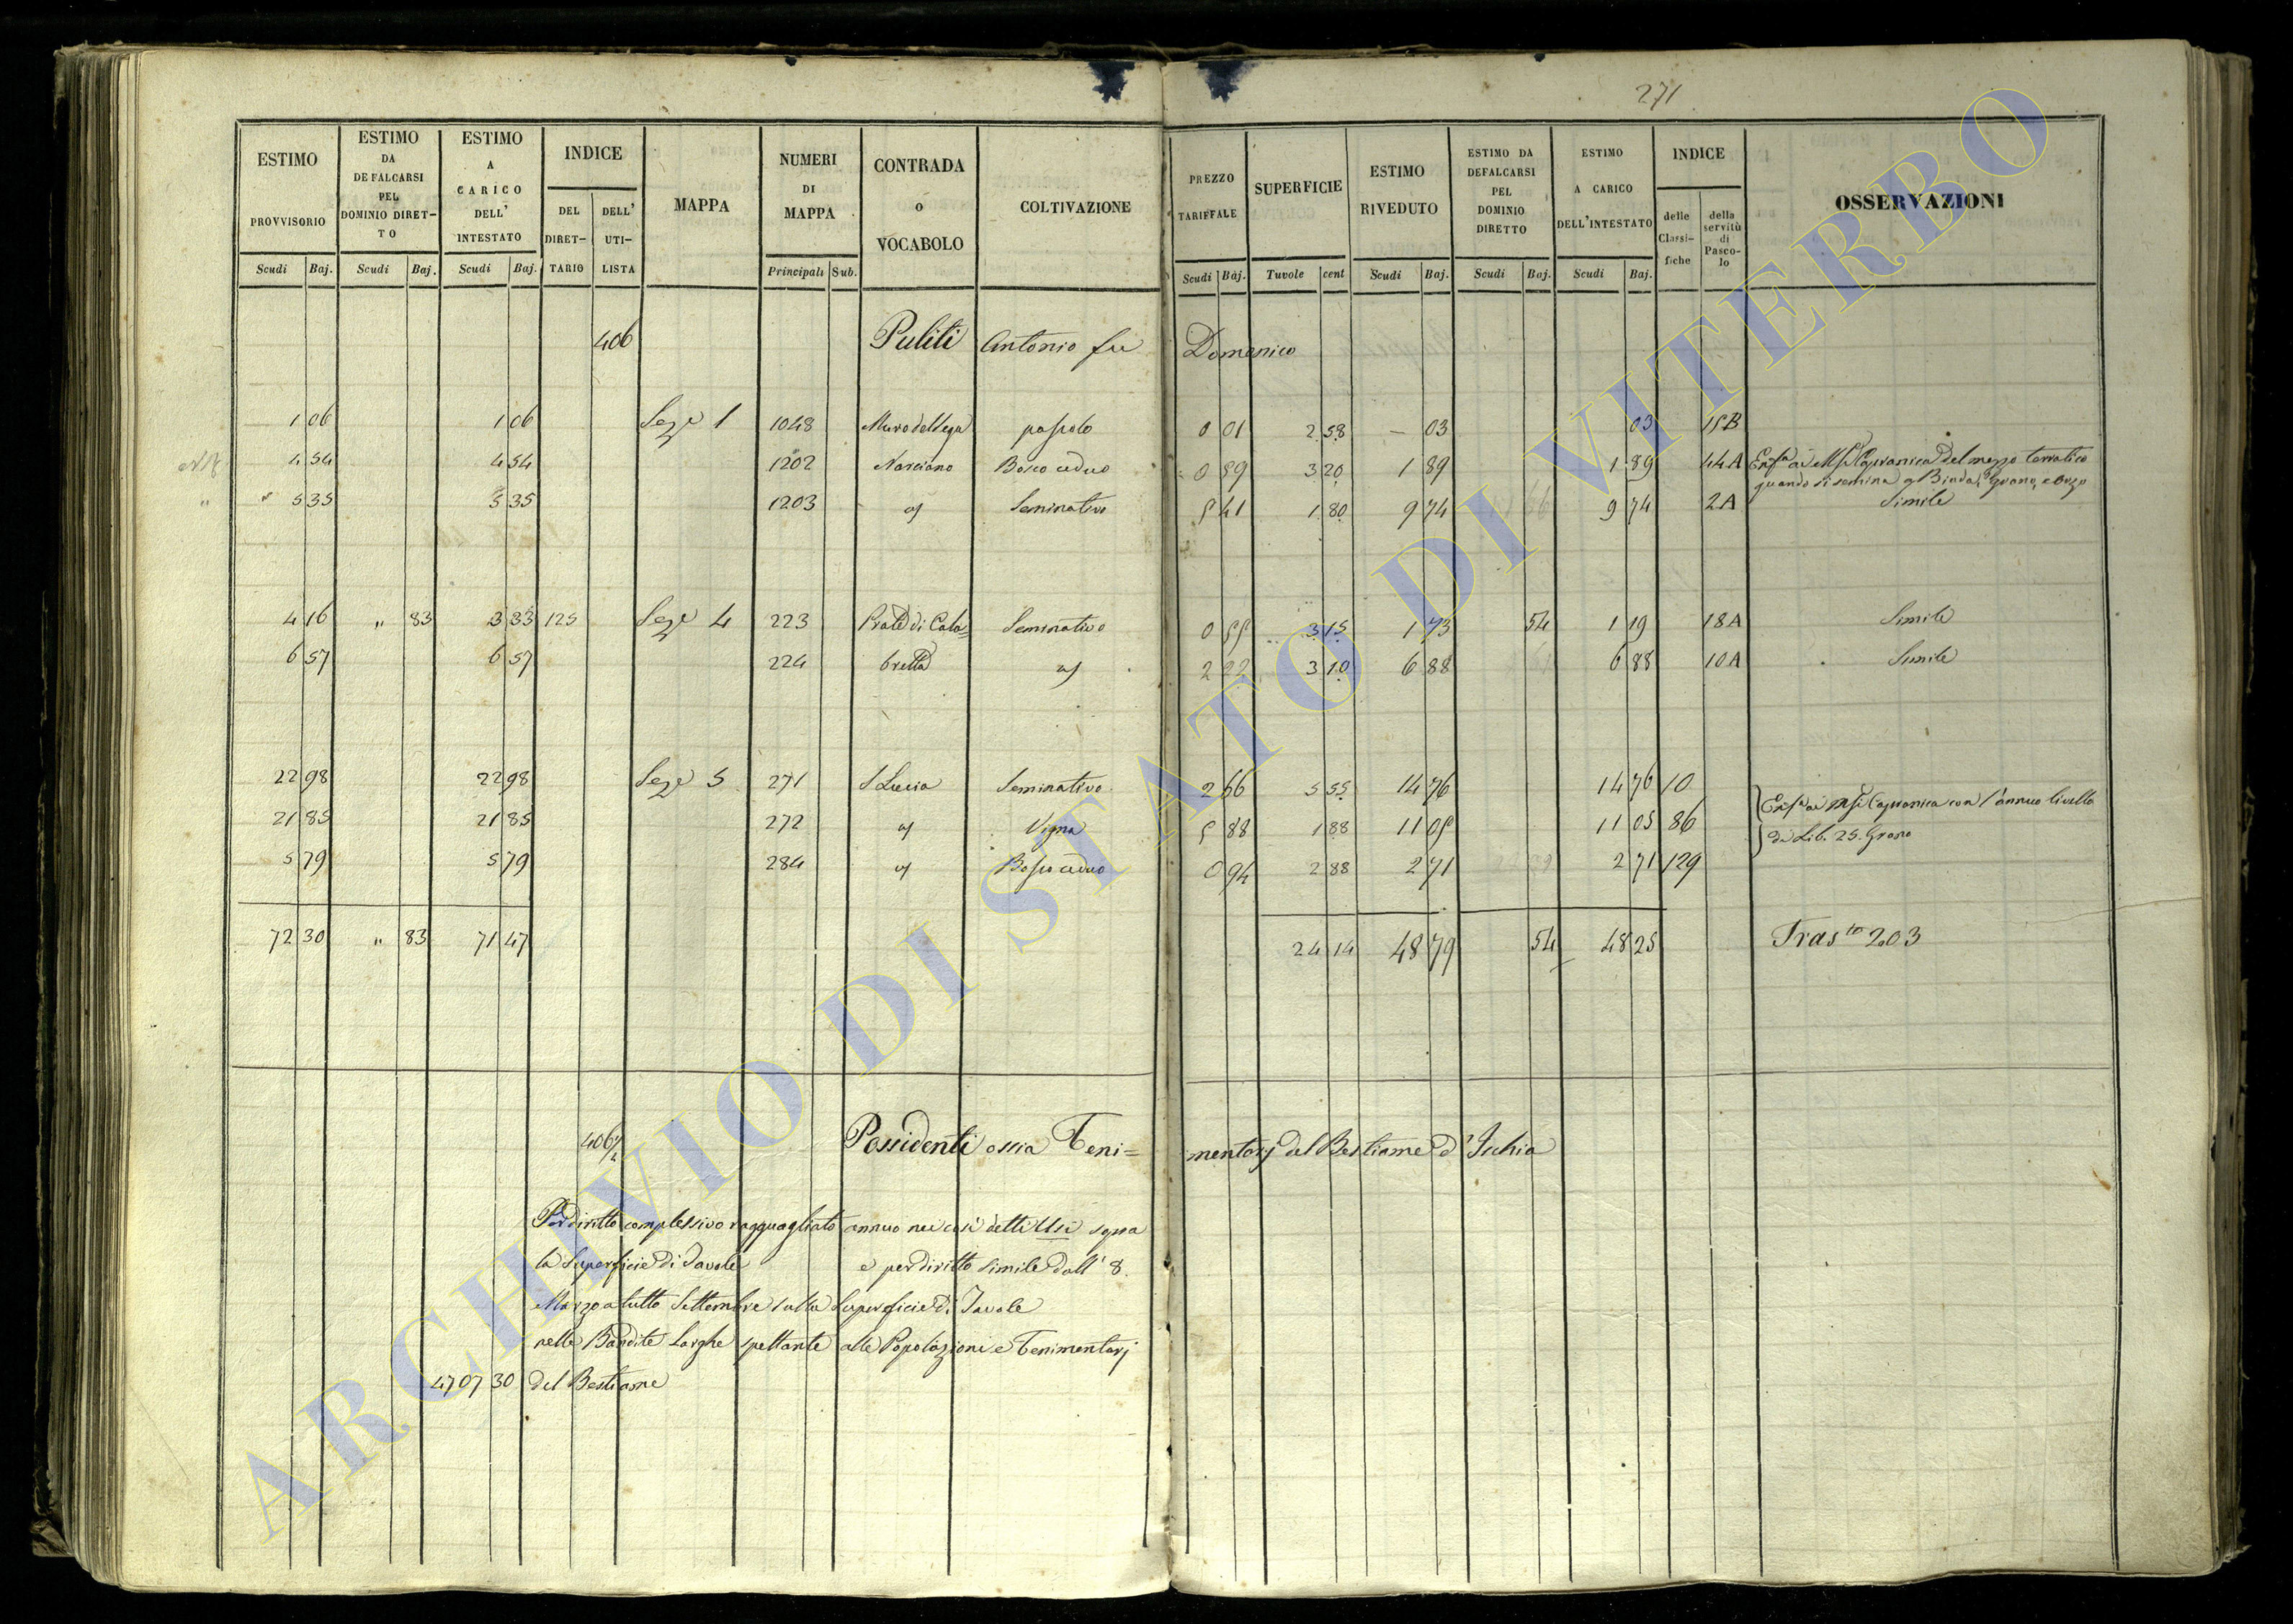 271
ESTIMO PROVVISORIO | ESTIMO DA DEFALCARSI PEL DOMINIO DIRET-TO | ESTIMO A CARICO DELL' INTESTATO | INDICE DEL DIRET-TARIO | DELL' UTI-LISTA | MAPPA | NUMERI DI MAPPA | CONTRADA o VOCABOLO | COLTIVAZIONE | PREZZO TARIFFALE | SUPERFICIE | ESTIMO RIVEDUTO | ESTIMO DA DEFALCARSI PEL DOMINIO DIRETTO | ESTIMO A CARICO DELL'INTESTATO | INDICE delle Classi-fiche | della servitù di Pasco-lo | OSSERVAZIONI
Scudi Baj. | Scudi Baj. | Scudi Baj. | Principali Sub. | Scudi Baj. | Tavole cent | Scudi Baj. | Scudi Baj. | Scudi Baj.
406 Puliti Antonio fu Domenico
1 06 | 1 06 | Seze 1 | 1048 | | pascolo | 0 01 | 2 58 | — 03 | 03 | 15B
4 54 | 4 54 | 1202 | Narciano | Bosco ceduo | 0 59 | 3 20 | 1 89 | 1 89 | 44A | Enfta ai Capranica del mezzo terratico
quando si semina a Biada, Grano, e Orzo
5 35 | 5 35 | 1203 | | Seminativo | 5 41 | 1 80 | 9 74 | 9 74 | 2A | Simile
4 16 | " 83 | 3 33 | 125 | Seze 4 | 223 | Prato di Cala= | Seminativo | 0 55 | 3 15 | 1 73 | 54 | 1 19 | 18A | Simile
6 57 | 6 57 | 224 | bretta | | 2 22 | 3 10 | 6 88 | 6 88 | 10A | Simile
22 98 | 22 98 | Seze 5 | 271 | S Lucia | Seminativo | 2 66 | 5 55 | 14 76 | 14 76 | 10 | Enfta ai Capranica con l'annuo livello
21 85 | 21 85 | 272 | | Vigna | 5 88 | 1 88 | 11 05 | 11 05 | 86 | di Lib. 25. Grano
5 79 | 5 79 | 284 | | Bosco ceduo | 0 94 | 2 88 | 2 71 | 2 71 | 129
72 30 | " 83 | 71 47 | 24 14 | 48 79 | 54 | 48 25 | Trasto 203
406½ Possidenti ossia Teni=mentarj del Bestiame d'Ischia
Per diritto complessivo ragguagliato annuo nei così detti Usi sopra
la Superficie di Tavole e per diritto simile dall' 8.
Marzo a tutto Settembre sulla Superficie di Tavole
nelle Bandite Larghe spettante alle Popolazioni e Tenimentarj
4707 30 del Bestiame
ARCHIVIO DI STATO DI VITERBO